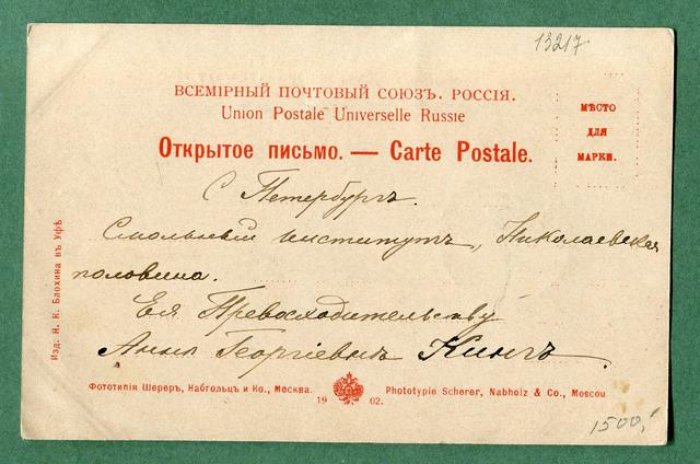 13217
ВСЕМІРНЫЙ ПОЧТОВЫЙ СОЮЗЪ. РОССІЯ.
Union Postale Universelle Russie
МѢСТО
ДЛЯ
МАРКИ.
Открытое письмо. — Carte Postale.
С Петербургъ.
Смольный институтъ, Николаевская
половина.
Ея Превосходительству
Аннѣ Георгіевнѣ Кингъ.
Изд. Н. К. Блохина въ Уфѣ
Фототипія Шереръ, Набгольцъ и Ко., Москва.
Phototypie Scherer, Nabholz & Co., Moscou
19 02.
1500,